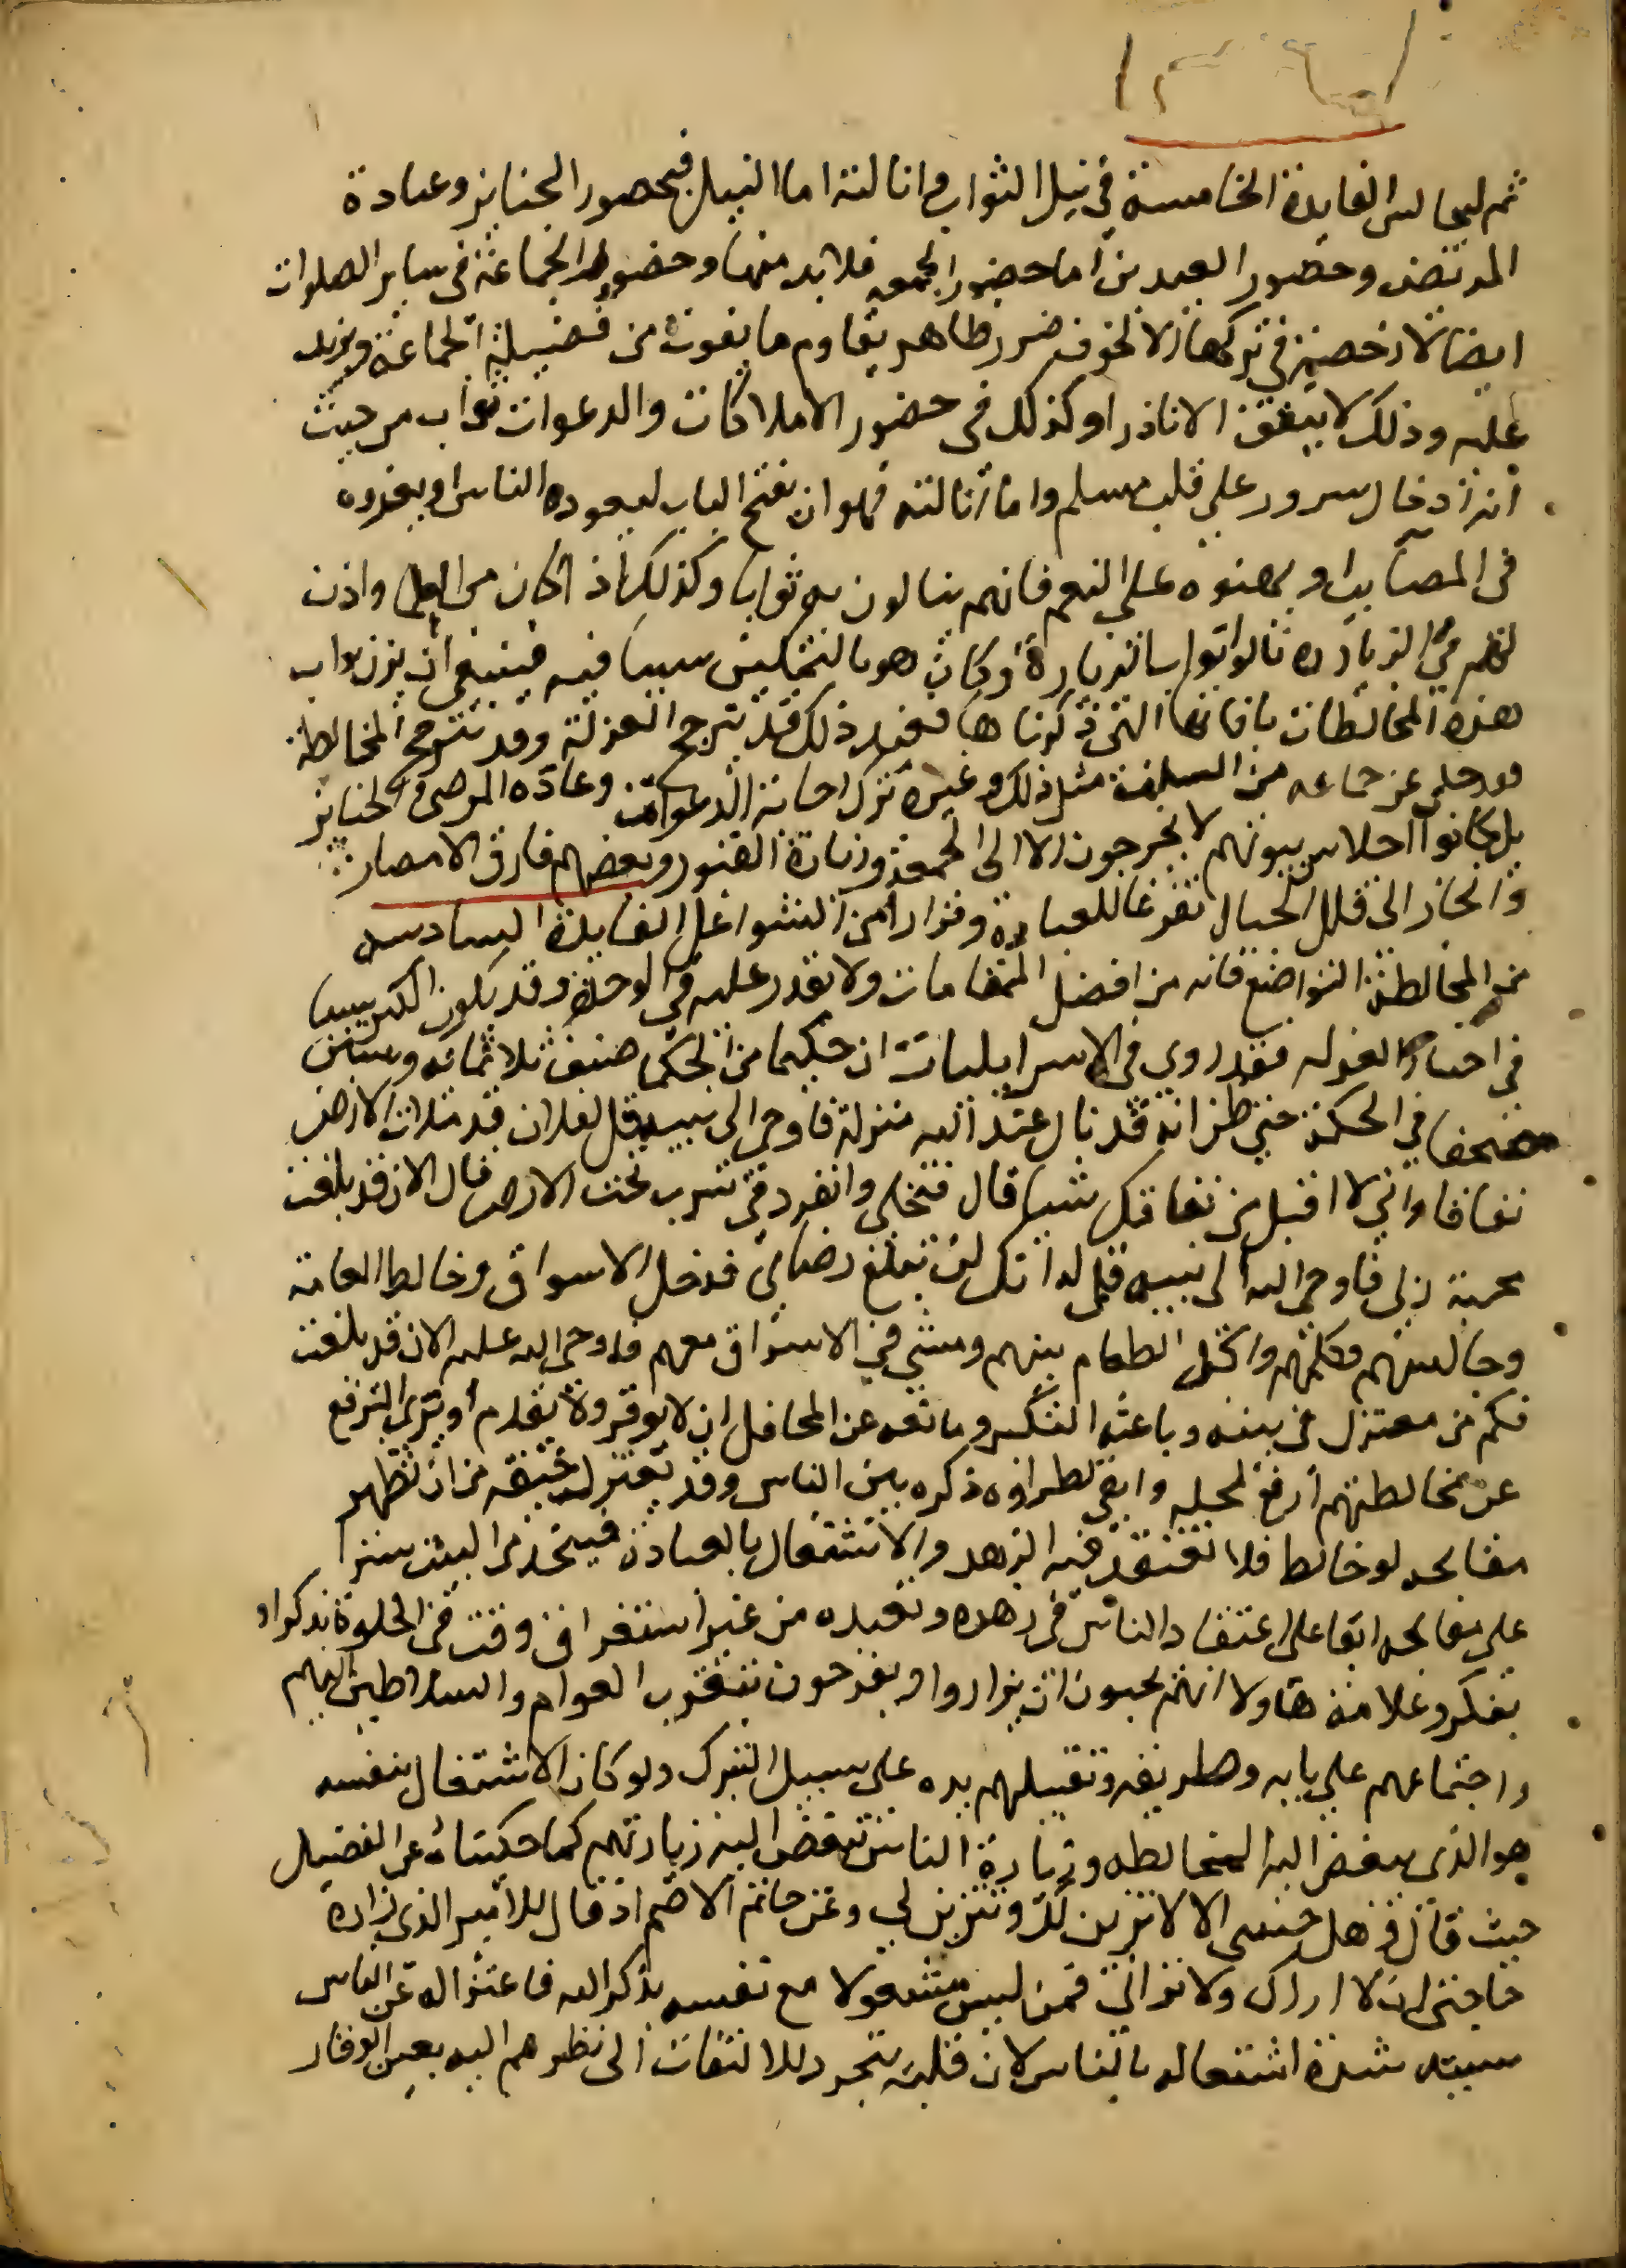 ثم ليجالس الفايدة الخامسة في نيل الثواب وانالته اما النيل فبحضور الجنايز وعيادة
المريض وحضور العيدين اما حضور الجمعه فلا بد منها وحضور الجماعة في ساير الصلوات
ايضا لا رخصة في تركها الا لخوف ضرر ظاهر يقاوم ما يفوت من فضيلة الجماعة ويزيد
عليه وذلك لا يتفق الا نادرا وكذلك في حضور الاملاكات والدعوات ثواب من حيث
انه ادخال سرور على قلب مسلم واما انالته فهو ان يفتح الباب ليعوده الناس او يعزوه
في المصايب او يهنوه على النعم فانهم ينالون به ثوابا وكذلك اذا كان من العلما واذن
لهم في الزيارة نالوا ثواب الزيارة وكان هو بالتمكين سببا فيه فينبغي ان يزن ثواب
هذه المخالطات بافاتها التي ذكرناها فعند ذلك قد يترجح العزلة وقد تترجح المخالطة
فقد حكي عن جماعه من السلف مثل ذلك وغيره ترك اجابة الدعوات وعيادة المرضى والجنايز
بل كانوا احلاس بيوتهم لا يخرجون الا الى الجمعة وزيارة القبور وبعضهم فارق الامصار
وانحاز الى قلل الجبال تفرغا للعبادة وفرارا من الشواغل الفايدة السادسه
من المخالطة التواضع فانه من افضل المقامات ولا يقدر عليه في الوحدة وقد يكون الكبر سببا
في اختيار العزله فقد روي في الاسرايليات ان حكيما من الحكما صنف ثلاثمائه وستين
مصحفا في الحكمة حتى ظن انه قد نال عند الله منزلة فاوحى الى نبيه قل لفلان قد ملات الارض
نفاقا واني لا اقبل من نفاقك شيا قال فتخلى وانفرد في سرب تحت الارض قال الان قد بلغت
محبة ربي فاوحى الله الى نبيه قل له انك لن تبلغ رضاي فدخل الاسواق وخالط العامة
وجالسهم وكلمهم واكل الطعام بينهم ومشى في الاسواق معهم فاوحى الله عليه الان قد بلغت
فكم من معتزل في بيته وباعثه التكبر ومانعه عن المحافل ان لا يوقر ولا يقدم او يرى الترفع
عن مخالطتهم ارفع لمحله وابقى لطراوه ذكره بين الناس وقد يعتزل خيفة من ان تظهر
مقابحه لو خالط فلا تعتقد فيه الزهد والاشتغال بالعبادة فيتخذ من البيت سترا
على مقابحه ابقا على اعتقاد الناس في زهده وتعبده من غير استغراق وقت في الخلوة بذكر او
تفكر وعلامة هاولا انهم يحبون ان يزاروا ويفرحون بتقرب العوام والسلاطين اليهم
واجتماعهم على بابه وطريقه وتقبيلهم يده على سبيل التبرك ولو كان الاشتغال بنفسه
هو الذي يبغض اليه المخالطه وزيارة الناس لبغض اليه زياراتهم كما حكيناه عن الفضيل
حيث قال وهل جيتني الا لاتزين لك وتتزين لي وعن حاتم الاصم انه قال للامير الذي زاره
حاجتي ان لا اراك ولا تراني فمن ليس مشغولا مع نفسه بذكر الله فاعتزاله عن الناس
سببه شدة اشتغاله بالناس لان قلبه يتجرد للالتفات الى نظرهم اليه بعين الوقار